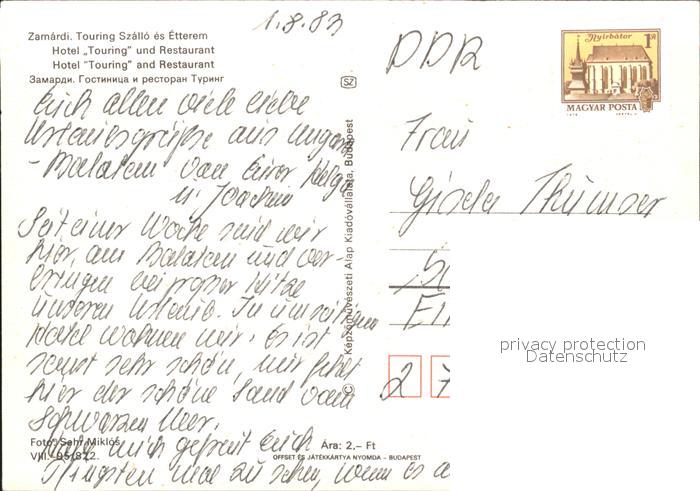 1.8.83
Zamárdi. Touring Szálló és Étterem
Hotel „Touring" und Restaurant
Hotel "Touring" and Restaurant
Замарди. Гостиница и ресторан Туринг
Euch allen viele liebe
Urlaubsgrüße aus Ungarn
- Balaton von Eurer Helga
u. Joachim
Seit einer Woche sind wir
hier, am Balaton und ver-
bringen bei großer Hitze
unseren Urlaub. In
Hotel wohnen wir. Es ist
sonst sehr schön, mir fehlt
hier der schöne Sand vom
Schwarzen Meer.
Habe mich gefreut Euch
Pfingsten mal zu sehen, wenn es a
Foto: Sehr Miklós
VIII. 95/822.
Ára: 2,- Ft
OFFSET ÉS JÁTÉKKÁRTYA NYOMDA - BUDAPEST
SZ
© Képzőművészeti Alap Kiadóvállalata, Budapest
Nyírbátor
1 Ft
MAGYAR POSTA
DDR
Frau
Gisela Thümser
2 7
privacy protection
Datenschutz